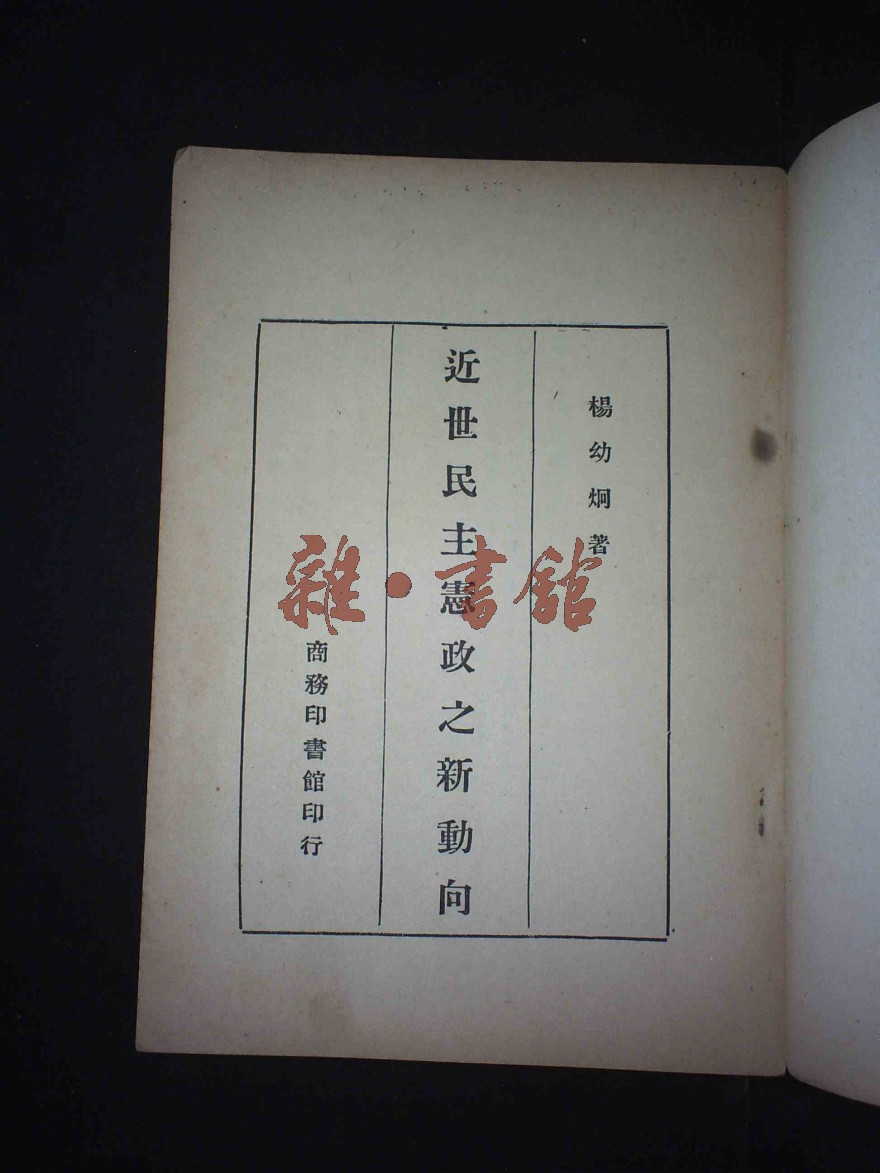 楊幼炯著
近世民主憲政之新動向
商務印書館印行
雜·書館